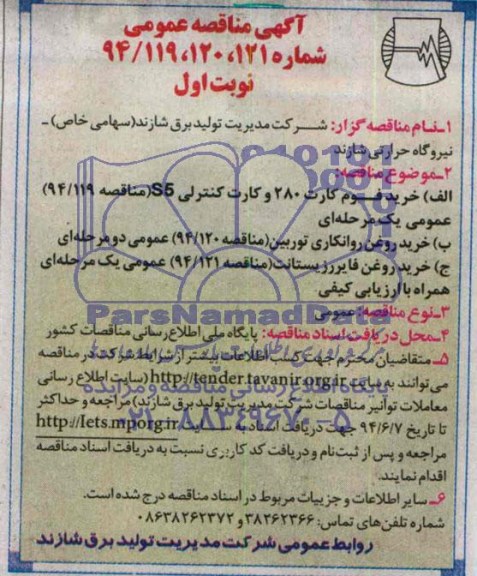 آگهی مناقصه عمومی
شماره ۱۲۱، ۱۲۰، ۹۴/۱۱۹
نوبت اول
۱ـ نام مناقصه گزار: شرکت مدیریت تولید برق شازند(سهامی خاص) ـ
نیروگاه حرارتی شازند
۲ـ موضوع مناقصه:
الف) خرید فوم کارت ۲۸۰ و کارت کنترلی S5(مناقصه ۹۴/۱۱۹)
عمومی یک مرحله‌ای
ب) خرید روغن روانکاری توربین(مناقصه ۹۴/۱۲۰) عمومی دو مرحله‌ای
ج) خرید روغن فایررزیستانت(مناقصه ۹۴/۱۲۱) عمومی یک مرحله‌ای
همراه با ارزیابی کیفی.
۳ـ نوع مناقصه: عمومی
ParsNamadData
۴ـ محل دریافت اسناد مناقصه: پایگاه ملی اطلاع رسانی مناقصات کشور
۵ـ متقاضیان محترم جهت کسب اطلاعات بیشتر از شرایط شرکت در مناقصه
می‌توانند به سایت http://tender.tavanir.org.ir (سایت اطلاع رسانی
پایگاه اطلاع رسانی مناقصه و مزایده
معاملات توانیر مناقصات شرکت مدیریت تولید برق شازند) مراجعه و حداکثر
تا تاریخ ۹۴/۶/۷ جهت دریافت اسناد http://Iets.mporg.ir
۰۲۱-۸۸۳۴۹۶۷۰-۵
مراجعه و پس از ثبت‌نام و دریافت کد کاربری نسبت به دریافت اسناد مناقصه
اقدام نمایند.
۶ـ سایر اطلاعات و جزییات مربوط در اسناد مناقصه درج شده است.
شماره تلفن‌های تماس: ۳۸۲۶۲۳۶۶ و ۰۸۶۳۸۲۶۲۳۷۲
روابط عمومی شرکت مدیریت تولید برق شازند